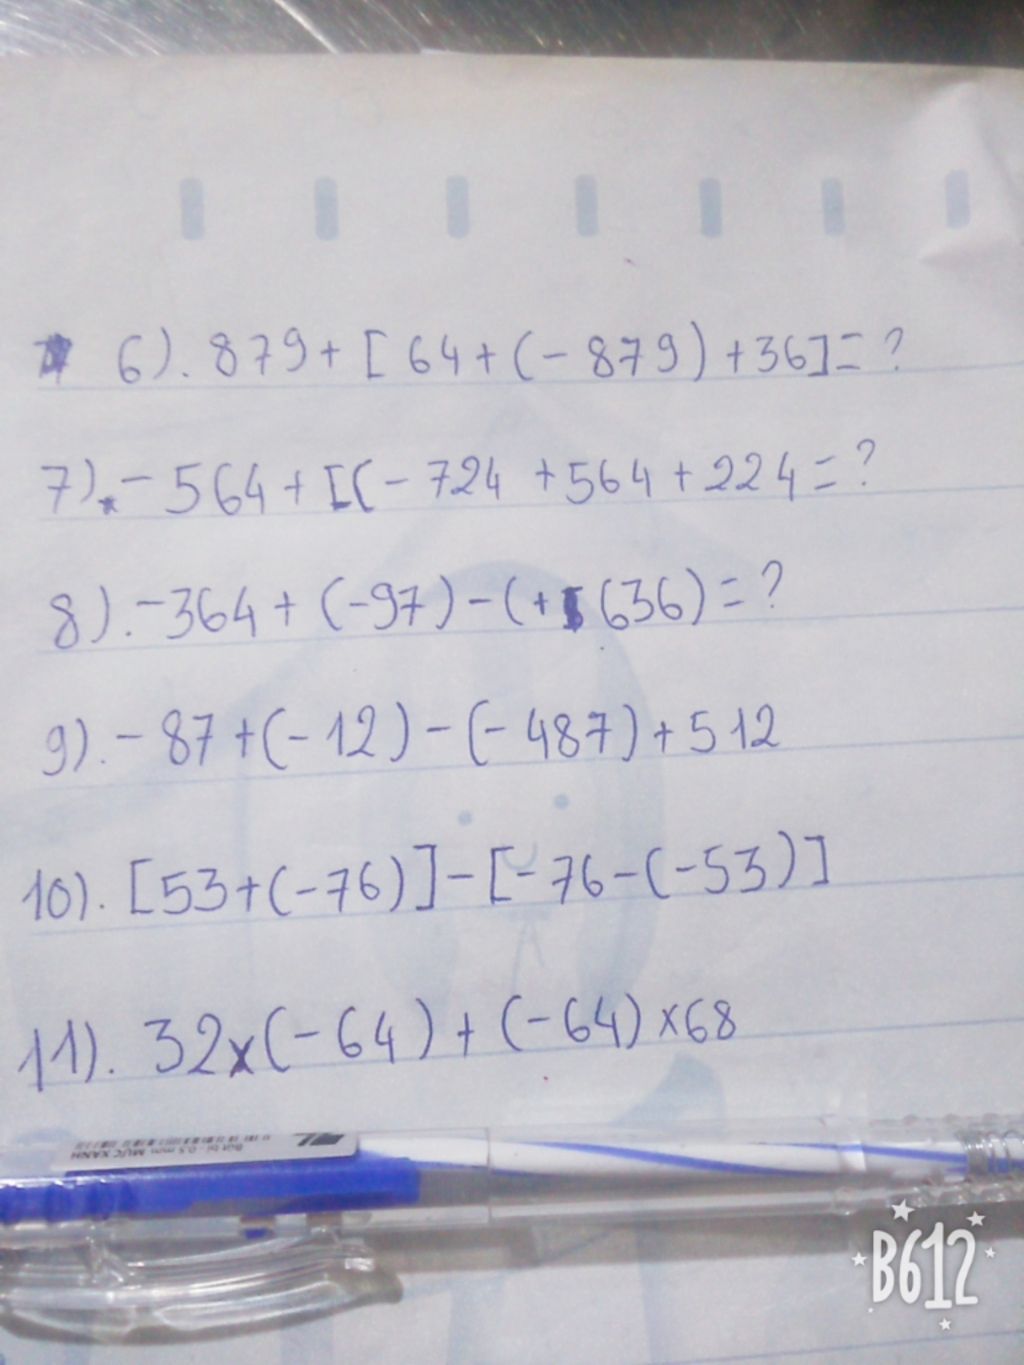 6). 879 + [ 64 + (- 879) + 36] = ?
7). - 564 + [(- 724 + 564 + 224 = ?
8). -364 + (-97) - (+ (636) = ?
9). - 87 + (- 12) - (- 487) + 512
10). [53 + (-76)] - [- 76 - (-53)]
11). 32 x (- 64) + (- 64) x 68
Bút bi - 0.5 mm MỰC XANH
B612